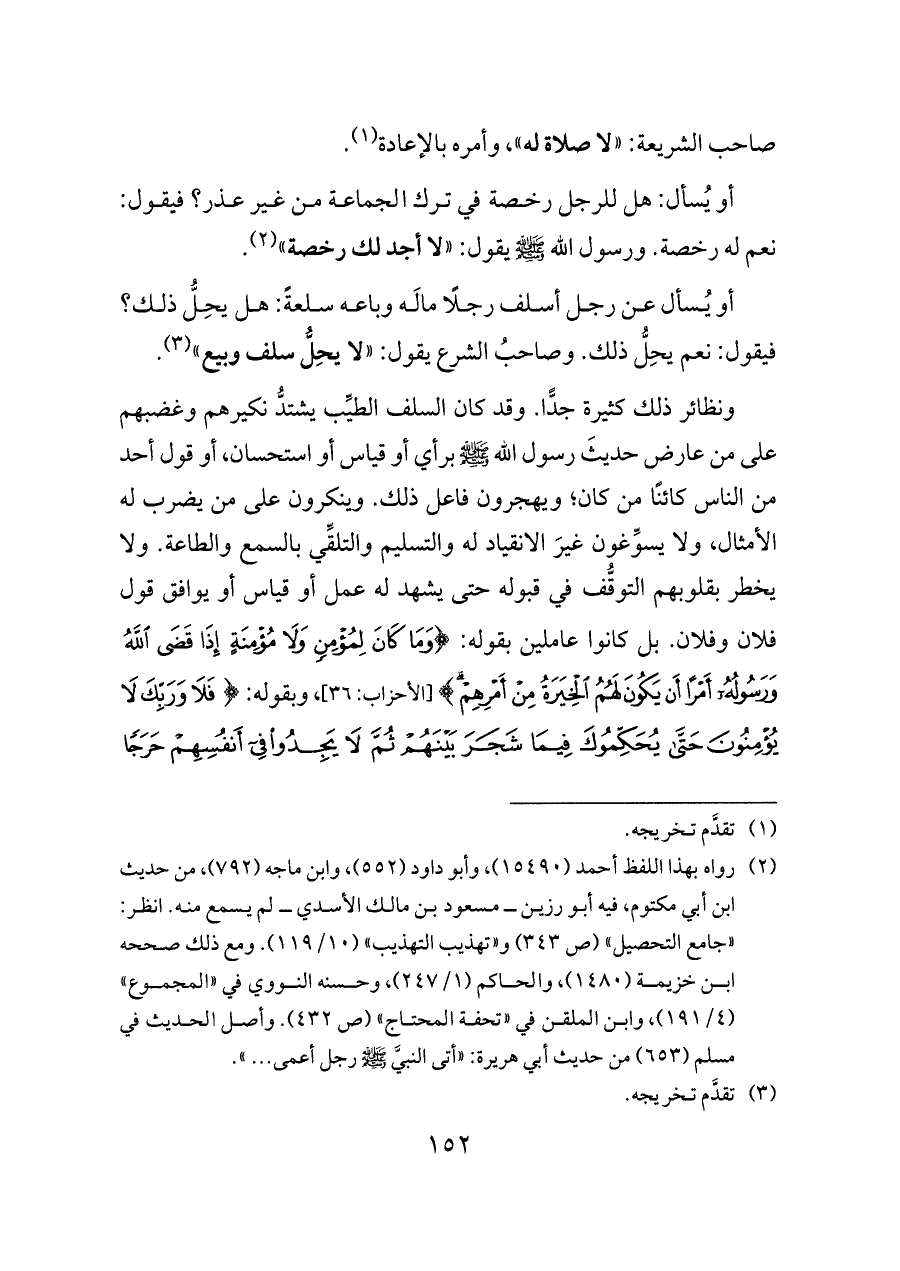 صاحب الشريعة: «لا صلاة له»، وأمره بالإعادة(١).
أو يُسأل: هل للرجل رخصة في ترك الجماعة من غير عذر؟ فيقول:
نعم له رخصة. ورسول الله ﷺ يقول: «لا أجد لك رخصة»(٢).
أو يُسأل عن رجل أسلف رجلًا مالَه وباعه سلعةً: هل يحِلُّ ذلك؟
فيقول: نعم يحِلُّ ذلك. وصاحبُ الشرع يقول: «لا يحِلُّ سلف وبيع»(٣).
ونظائر ذلك كثيرة جدًّا. وقد كان السلف الطيِّب يشتدُّ نكيرهم وغضبهم
على من عارض حديثَ رسول الله ﷺ برأي أو قياس أو استحسان، أو قول أحد
من الناس كائنًا من كان؛ ويهجرون فاعل ذلك. وينكرون على من يضرب له
الأمثال، ولا يسوِّغون غيرَ الانقياد له والتسليم والتلقِّي بالسمع والطاعة. ولا
يخطر بقلوبهم التوقُّف في قبوله حتى يشهد له عمل أو قياس أو يوافق قول
فلان وفلان. بل كانوا عاملين بقوله: ﴿وَمَا كَانَ لِمُؤْمِنٍ وَلَا مُؤْمِنَةٍ إِذَا قَضَى ٱللَّهُ
وَرَسُولُهُۥٓ أَمْرًا أَن يَكُونَ لَهُمُ ٱلْخِيَرَةُ مِنْ أَمْرِهِمْ ۗ﴾ [الأحزاب: ٣٦]، وبقوله: ﴿فَلَا وَرَبِّكَ لَا
يُؤْمِنُونَ حَتَّىٰ يُحَكِّمُوكَ فِيمَا شَجَرَ بَيْنَهُمْ ثُمَّ لَا يَجِدُوا۟ فِىٓ أَنفُسِهِمْ حَرَجًا
(١) تقدَّم تخريجه.
(٢) رواه بهذا اللفظ أحمد (١٥٤٩٠)، وأبو داود (٥٥٢)، وابن ماجه (٧٩٢)، من حديث
ابن أبي مكتوم، فيه أبو رزين ــ مسعود بن مالك الأسدي ــ لم يسمع منه. انظر:
«جامع التحصيل» (ص ٣٤٣) و«تهذيب التهذيب» (١٠/ ١١٩). ومع ذلك صححه
ابن خزيمة (١٤٨٠)، والحاكم (١/ ٢٤٧)، وحسنه النووي في «المجموع»
(٤/ ١٩١)، وابن الملقن في «تحفة المحتاج» (ص ٤٣٢). وأصل الحديث في
مسلم (٦٥٣) من حديث أبي هريرة: «أتى النبيَّ ﷺ رجل أعمى... ».
(٣) تقدَّم تخريجه.
١٥٢